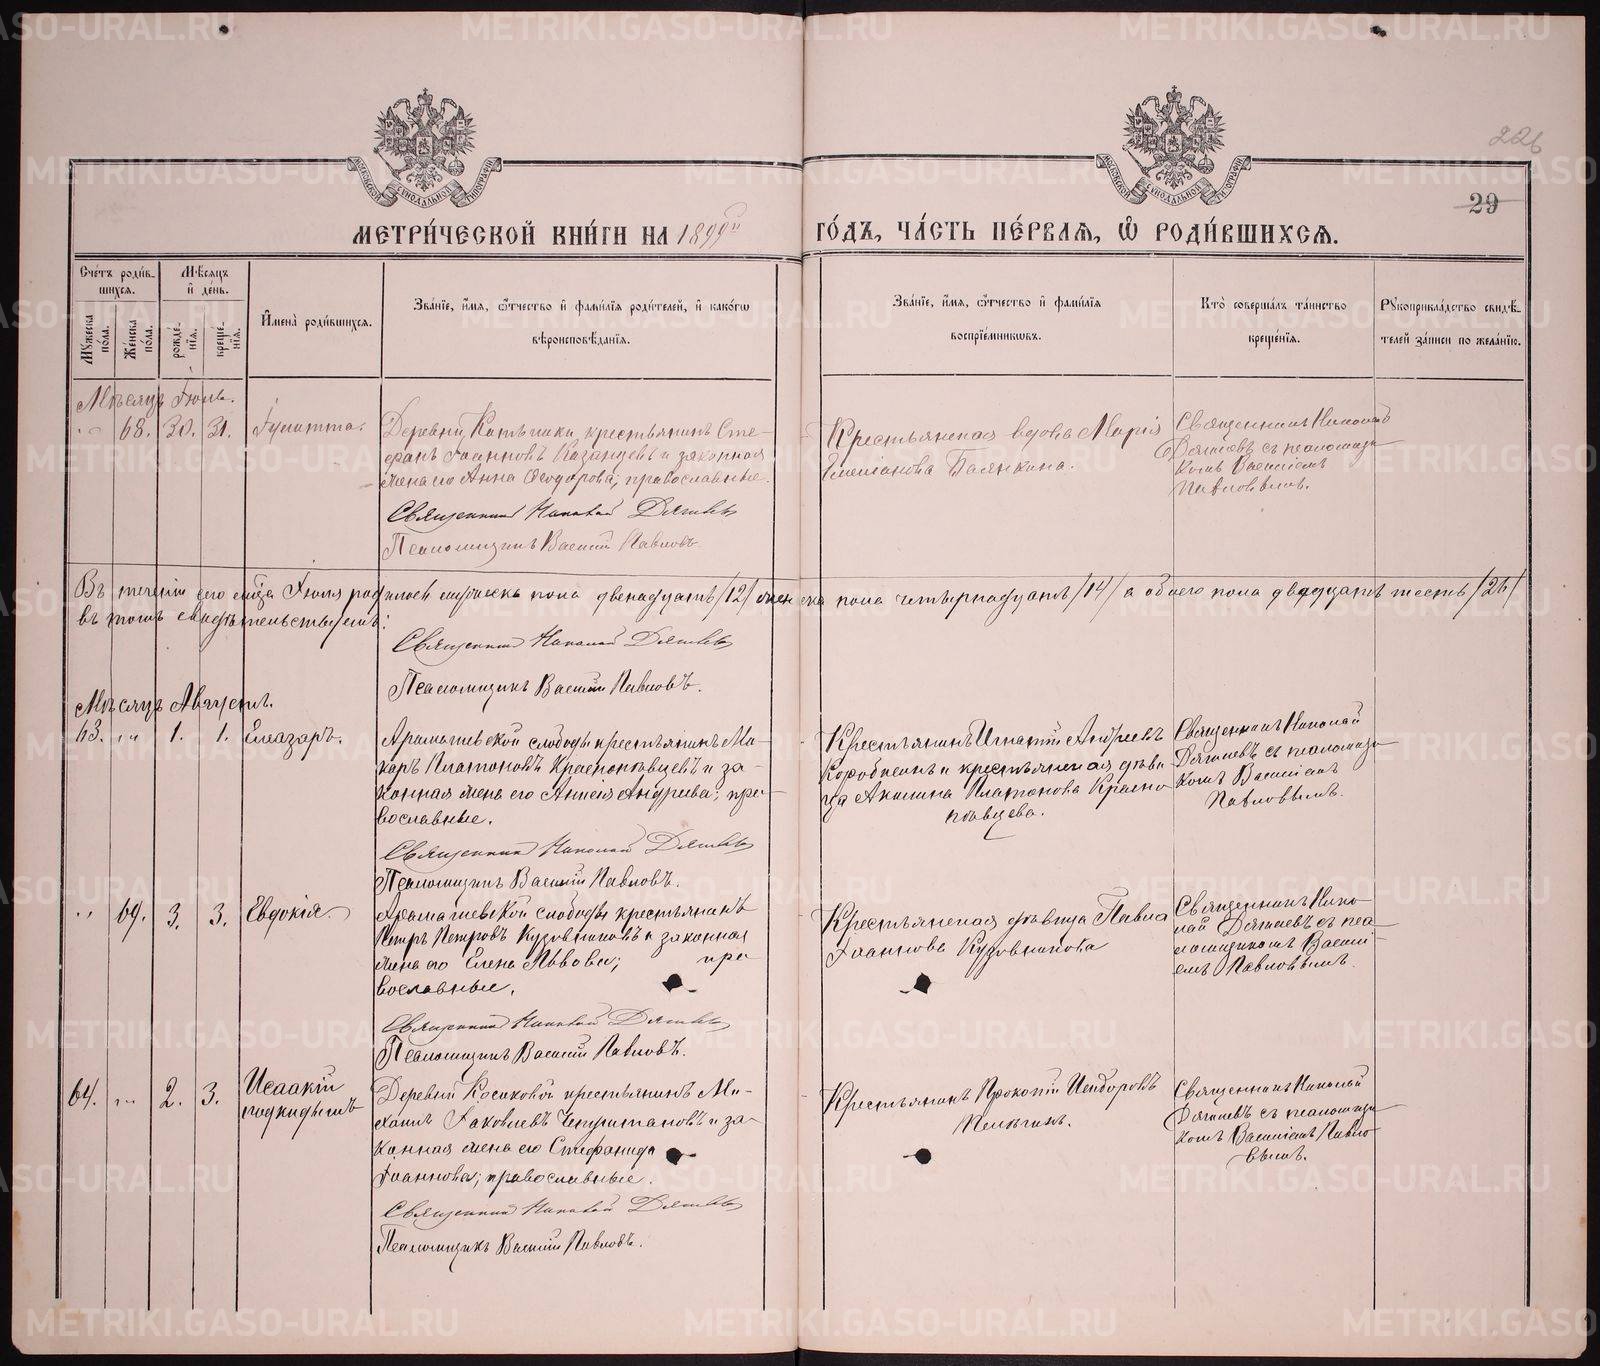 226
29
МЕТРИ́ЧЕСКОЙ КНИ́ГИ НА 1899й
ГО́ДЪ, ЧА́СТЬ ПЕ́РВАЯ, Ѡ РОДИ́ВШИХСЯ.
Сче́тъ роди́в-
шихся.
Мѣ́сяцъ
и де́нь.
Му́жеска
по́ла.
Же́нска
по́ла.
рожде́-
нія.
креще́-
нія.
Имена̀ роди́вшихся.
Зва́ніе, и́мя, ѻ҆́тчество и фами́лія роди́телей, и како́гѡ
вѣроисповѣ́данія.
Зва́ніе, и́мя, ѻ҆́тчество и фами́лія
воспріе́мниковъ.
Кто̀ соверша́лъ та́инство
креще́нія.
Рукоприкла́дство свидѣ́-
телей за́писи по жела́нію.
Мѣсяцъ Іюль.
" 68. 30. 31. Іулитта.
крестьянинъ Сте-
фанъ Іоанновъ Казанцевъ и законная
жена его Анна Ѳеодорова; православные.
Священникъ Николай Дягилевъ
Псаломщикъ Василій Павловъ.
Крестьянская вдова Марія
Баянкина.
Священникъ Николай
Дягилевъ съ псаломщи-
комъ Василіемъ
Павловымъ.
Въ теченіи сего мѣсяца Іюля родилося мужеска пола двенадцать /12/ женска пола четырнадцать /14/ а обоего пола двадцать шесть /26/
въ томъ свидѣтельствуемъ:
Священникъ Николай Дягилевъ
Псаломщикъ Василій Павловъ.
Мѣсяцъ Августъ.
63. " 1. 1. Елеазаръ.
Арамашевской слободы крестьянинъ Ма-
каръ Платоновъ Краснопѣвцевъ и за-
конная жена его Анисія Андреева; пра-
вославные.
Священникъ Николай Дягилевъ
Псаломщикъ Василій Павловъ.
Крестьянинъ Игнатій Андреевъ
и крестьянская дѣви
ца Акилина Платонова Красно
пѣвцева.
Священникъ Николай
Дягилевъ съ псаломщи-
комъ Василіемъ
Павловымъ.
" 69. 3. 3. Евдокія.
Арамашевской слободы крестьянинъ
Петръ Петровъ Кузовниковъ и законная
жена его Елена Львова; пра
вославные.
Священникъ Николай Дягилевъ
Псаломщикъ Василій Павловъ.
Крестьянская дѣвица Павла
Іоаннова Кузовникова
Священникъ Нико-
лай Дягилевъ съ пса-
ломщикомъ Васили-
емъ Павловымъ.
64. " 2. 3. Исаакій
подкидышъ
Деревни Косиковой крестьянинъ Ми-
хаилъ Іаковлевъ Чепуштановъ и за-
конная жена его Стефанида
Іоаннова; православные.
Священникъ Николай Дягилевъ
Псаломщикъ Василій Павловъ.
Крестьянинъ Прокопій Исидоровъ
Священникъ Николай
Дягилевъ съ псаломщи-
комъ Василіемъ Павло-
вымъ.
METRIKI.GASO-URAL.RU